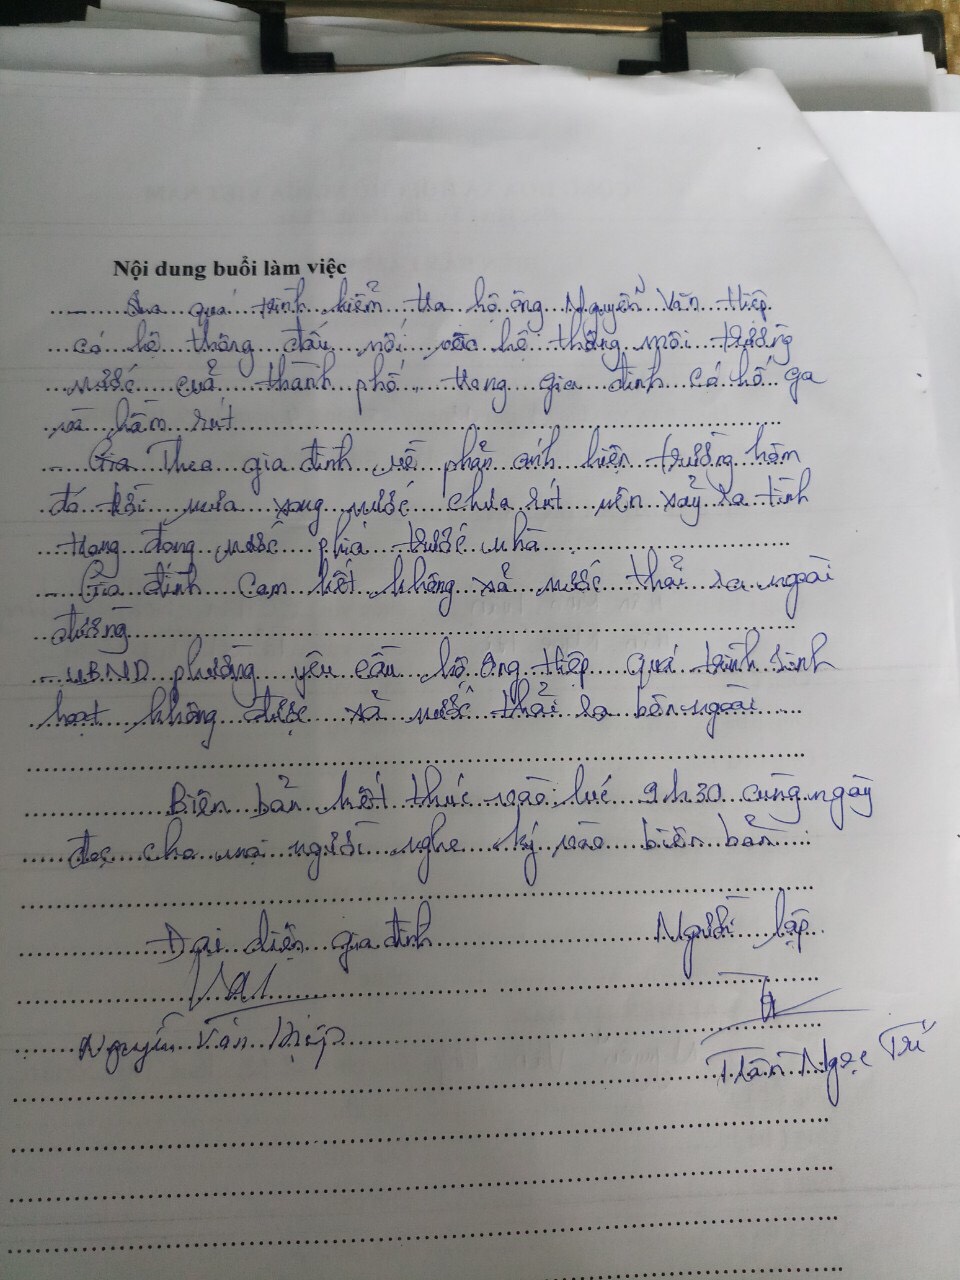 Nội dung buổi làm việc
- Qua quá trình kiểm tra hộ ông Nguyễn Văn Hiệp
có hệ thống đấu nối vào hệ thống môi trường
nước của thành phố, trong gia đình có hố ga
và hầm rút
- Theo gia đình về phản ánh hiện trường hôm
đó trời mưa xong nước chưa rút nên xảy ra tình
trạng đọng nước phía trước nhà
- Gia đình cam kết không xả nước thải ra ngoài
đường
- UBND phường yêu cầu hộ ông Hiệp quá trình sinh
hoạt không được xả nước thải ra bên ngoài
Biên bản kết thúc vào lúc 9h30 cùng ngày
đọc cho mọi người nghe ký vào biên bản.
Đại diện gia đình
Người lập
Nguyễn Văn Hiệp
Trần Ngọc Trí